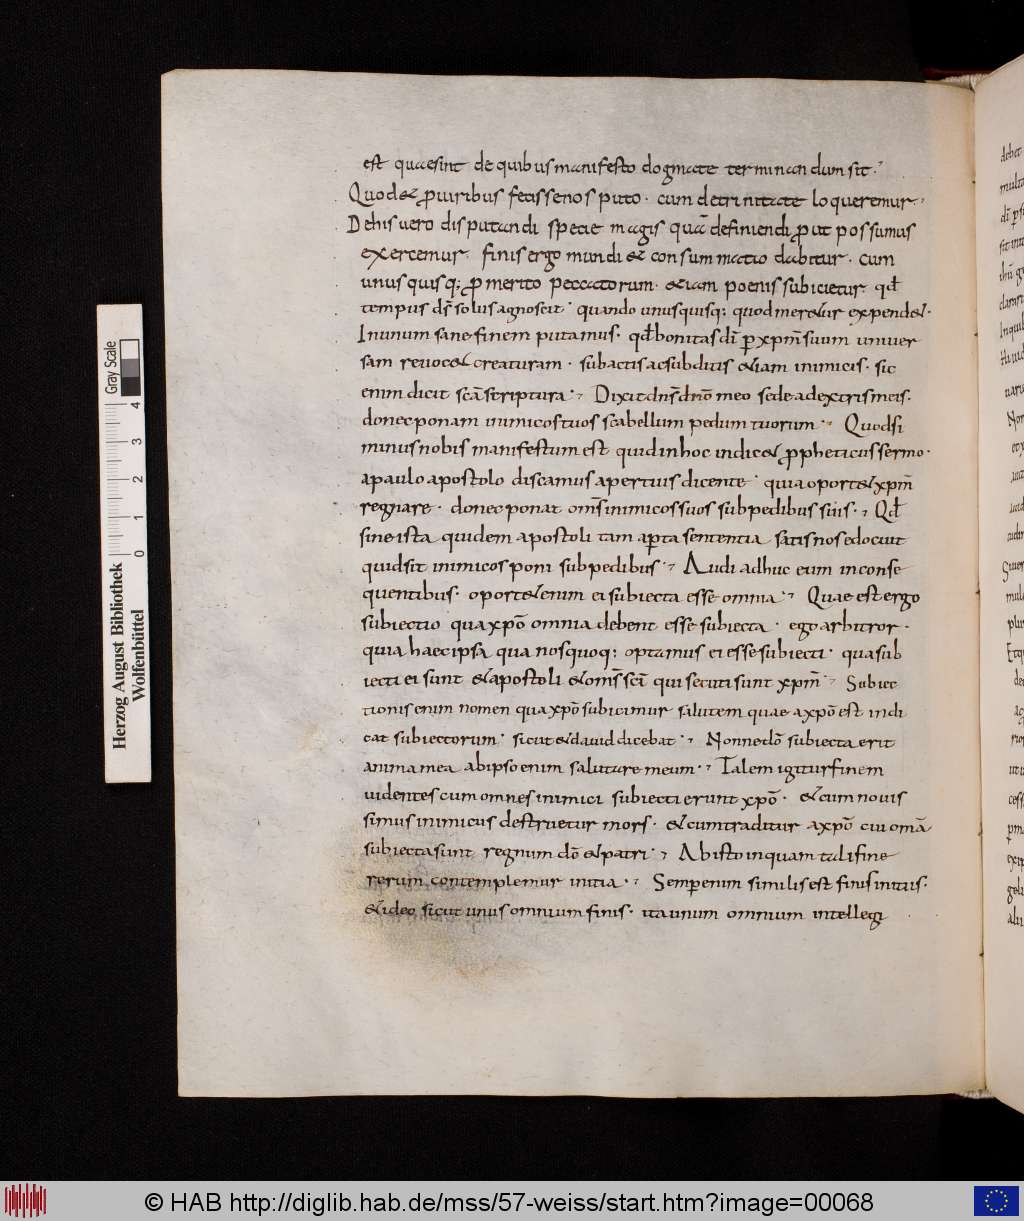 est quaesint de quibus manifesto dogmate terminandum sit·
Quod & ꝓuiribus fecisse nos puto· cum de trinitate loqueremur·
De his uero disputandi specie magis quā definiendi ꝓut possumus
exercemur· finis ergo mundi & consummatio dabitur· cum
unus quisq; ꝓ merito peccatorum· &iam poenis subicietur· qđ
tempus dš solus agnoscit· quando unusquisq; quod mer&ur expend&·
Inunum sane finem putamus· qđ bonitas dī ꝑ xpm̄ suum uniuer
sam reuoc& creaturam· subactis ac subditis &iam inimicis· sic
enim dicit scā scriptura· Dixit dn̄s dn̄o meo sede adextris meis·
donec ponam inimicos tuos scabellum pedum tuorum· Quod si
minus nobis manifestum est quid in hoc indic& ꝓpheticus sermo·
apaulo apostolo discamus apertius dicente· quia oport& xpm̄
regnare· donec ponat om̄s inimicos suos sub pedibus suis· Qđ
si ne ista quidem apostoli tam aꝑta sententia satis nos edocuit
quid sit inimicos poni sub pedibus· Audi adhuc eum in conse
quentibus· oport& enim ei subiecta esse omnia· Quae est ergo
subiectio qua xpō omnia debent esse subiecta· ego arbitror·
quia haec ipsa qua nos quoq; optamus ei esse subiecti· qua sub
iecti ei sunt & apostoli & om̄s scī qui secuti sunt xpm̄· Subiec
tionis enim nomen qua xpō subicimur salutem quae a xpō est indi
cat subiectorum· sicut & dauid dicebat· Nonne dō subiecta erit
anima mea ab ipso enim salutare meum· Talem igitur finem
uidentes cum omnes inimici subiecti erunt xpō· & cum nouis
simus inimicus destruetur mors· & cum traditur a xpō cui omā
subiecta sunt regnum dō & patri· Ab isto inquam tali fine
rerum contemplemur initia· Semper enim similis est finis initiis·
& ideo sicut unus omnium finis· ita unum omnium intellegi
Herzog August Bibliothek
Wolfenbüttel
Gray Scale
0 1 2 3 4
© HAB http://diglib.hab.de/mss/57-weiss/start.htm?image=00068